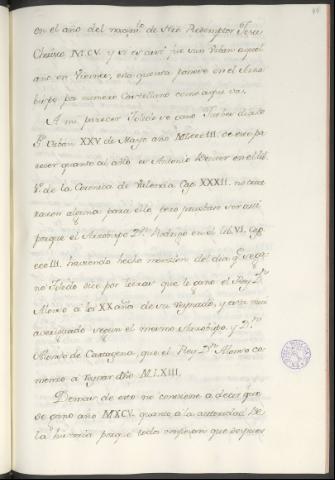 en el año del nacimto. de Nro Redemptor Jesu
Christo MCV. y si es assi fue san Urban aquel
año en Viernes, esta quenta parece en el Arzo
bispo por numero Castellano como aqui va.
A mi parecer Toledo se gano Jueves dia de
Sn. Urban XXV de Mayo año MLXXXIII. de este pa
recer quanto al año es Antonio Beuter en el lib.
de la Coronica de Valencia Cap. XXXII. no trae
razon alguna para ello pero pruebase ser assi
porque el Arzobispo Dn. Rodrigo en el lib. VI. Cap.
haviendo hecho mencion del dia qe. se ga
no Toledo dice por letras que le gano el Rey Dn.
Alonso a los XX años de su Reynado, y esta mui
averiguado segun el mismo Arzobispo, y Dn.
Alonso de Cartagena, que el Rey Dn. Alonso co
menzo a reynar año MLXIII.
Demas de esto no conviene a decir que
se gano año MXCV. quanto a la autoridad de
la historia porque todos confiesan que despues